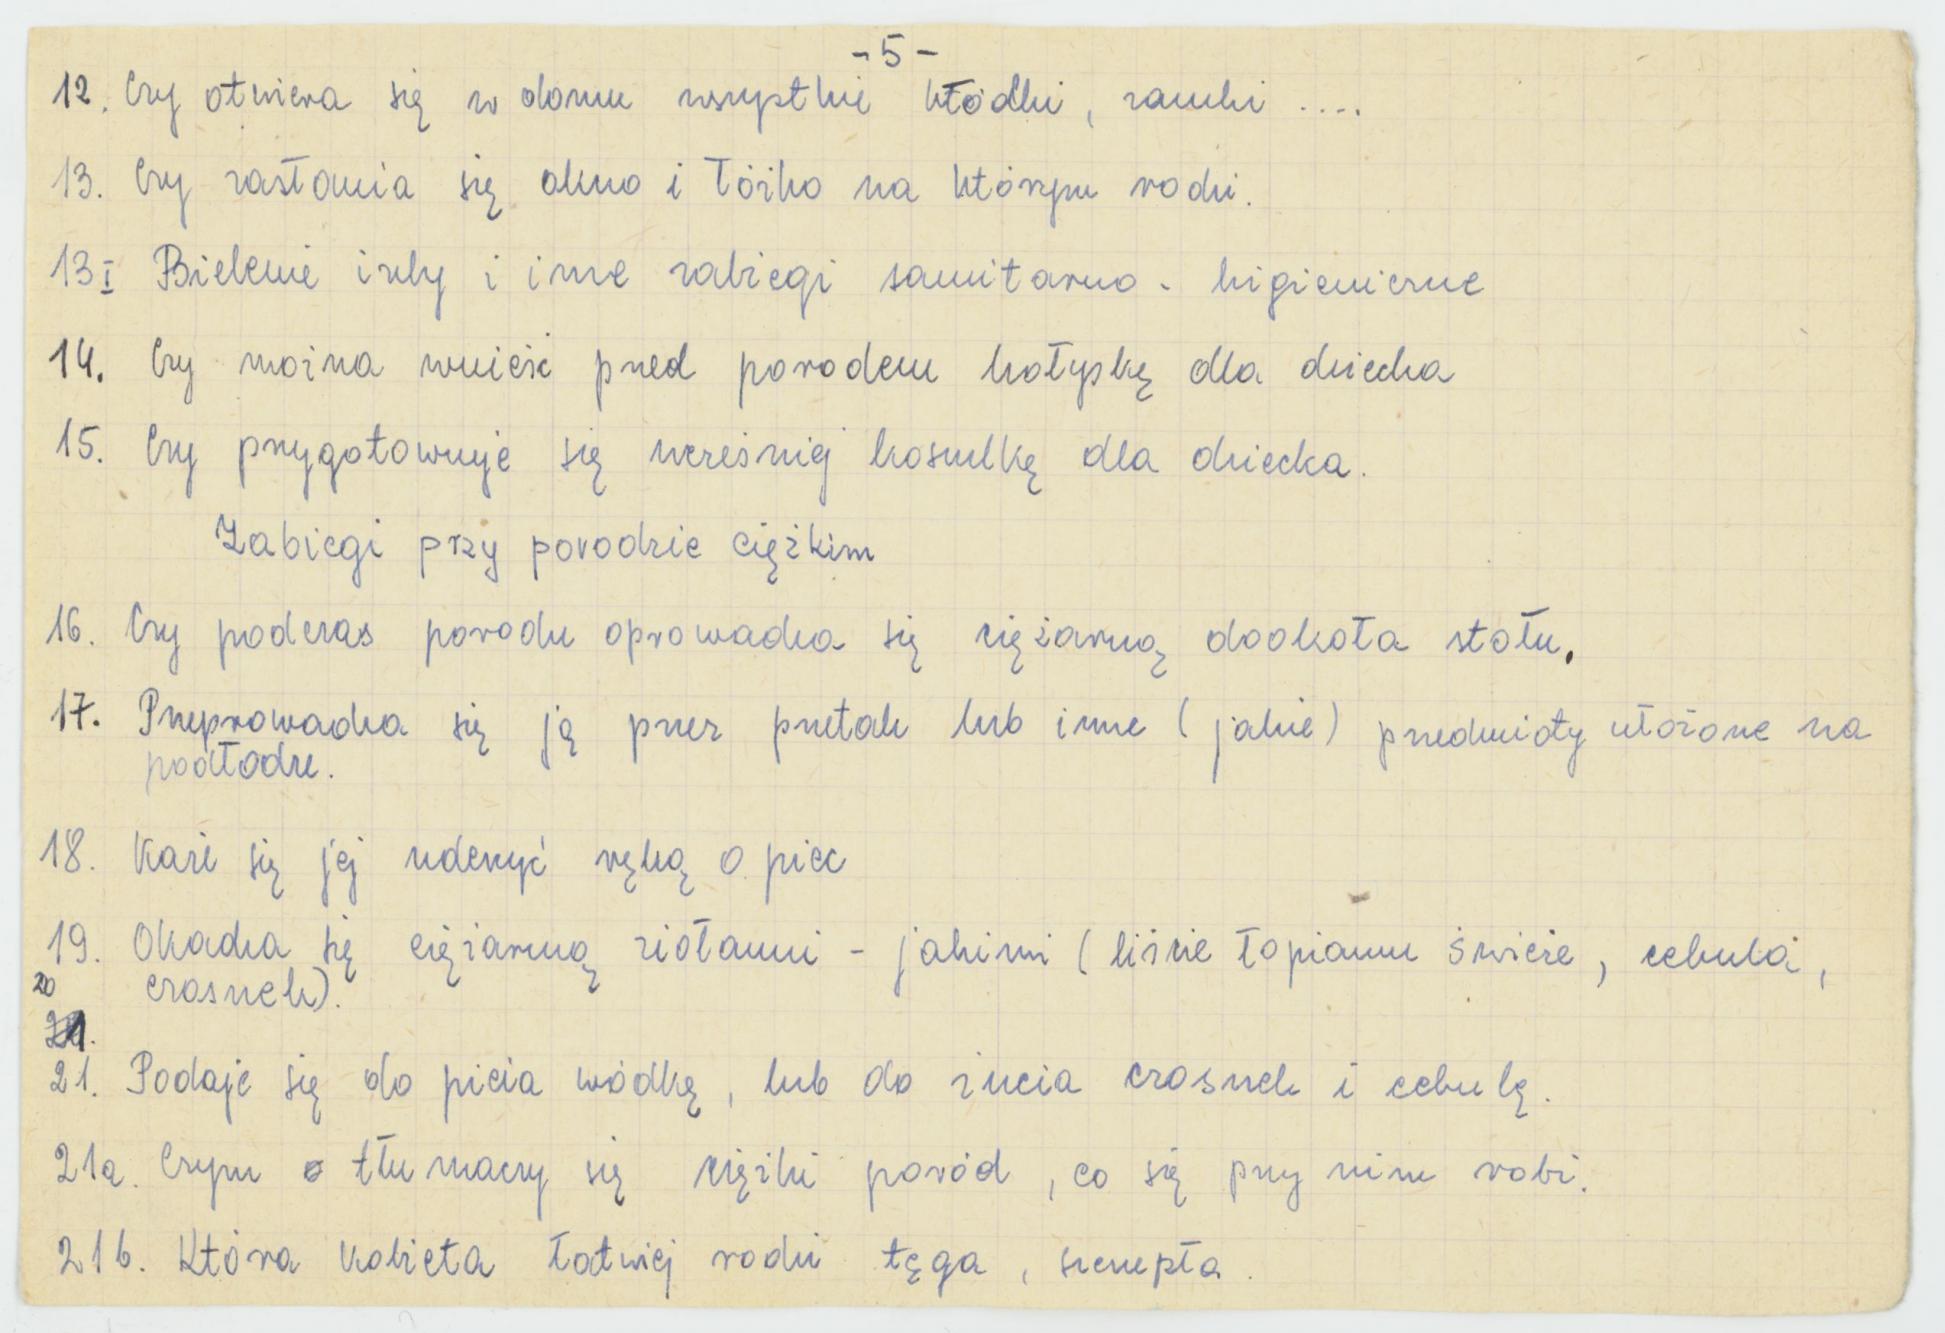 - 5 -
12. Czy otwiera się w domu wszystkie kłódki, zamki ....
13. Czy zasłania się okno i łóżko na którym rodzi.
13I Bielenie izby i inne zabiegi sanitarno - higieniczne
14. Czy można wnieść przed porodem kołyskę dla dziecka
15. Czy przygotowuje się wcześniej koszulkę dla dziecka.
Zabiegi przy porodzie ciężkim
16. Czy podczas porodu oprowadza się ciężarną dookoła stołu.
17. Przeprowadza się ją przez przetak lub inne (jakie) przedmioty ułożone na
podłodze.
18. Każe się jej uderzyć ręką o piec
19. Okadza się ciężarną ziołami - jakimi (liście łopianu świeże, cebula,
20 czosnek).
21. Podaje się do picia wódkę, lub do żucia czosnek i cebulę.
21a. Czym tłumaczy się ciężki poród, co się przy nim robi.
21b. Która kobieta łatwiej rodzi tęga, szczupła.